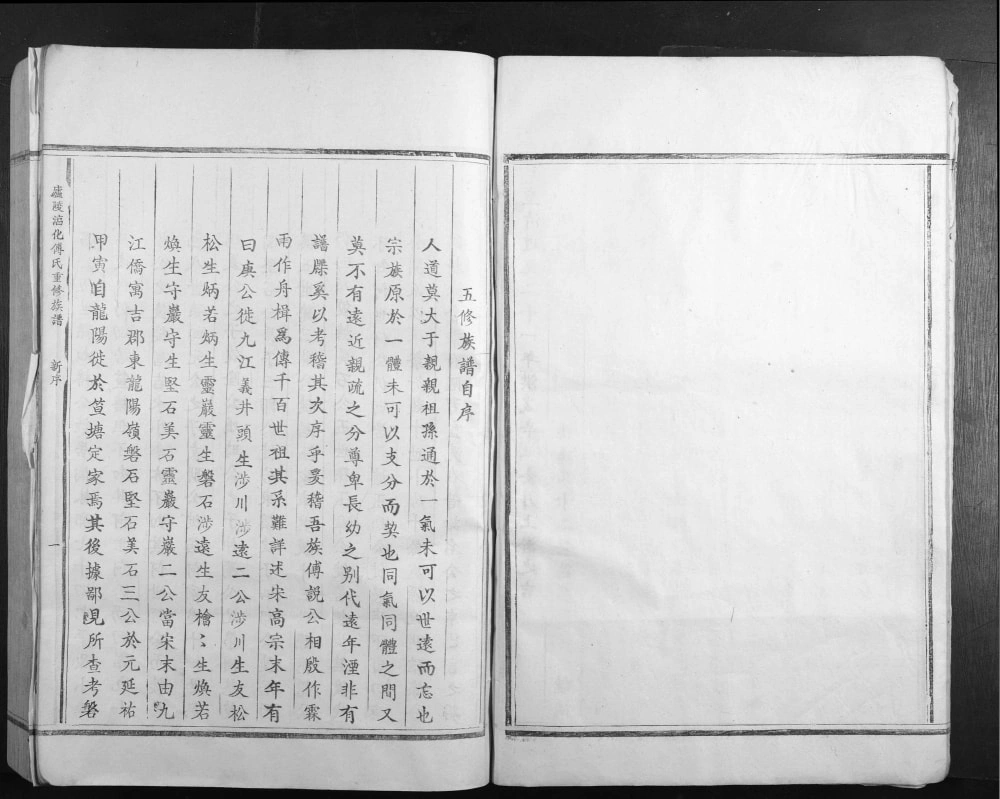 五修族譜自序
人道莫大于親親祖孫通於一氣未可以世遠而忘也
宗族原於一體未可以支分而契也同氣同體之間又
莫不有遠近親疏之分尊卑長幼之別代遠年湮非有
譜牒奚以考稽其次序乎爰稽吾族傅説公相殷作霖
雨作舟楫爲傳千百世祖其系難詳述宋高宗末年有
曰庚公徙九江義井頭生涉川涉遠二公涉川生友松
松生炳若炳生靈巖靈生磐石涉遠生友檜〻生煥若
煥生守巖守生堅石美石靈巖守巖二公當宋末由九
江僑寓吉郡東龍陽嶺磐石堅石美石三公於元延祐
甲寅自龍陽徙於笪塘定家焉其後據鄙見所查考磐
廬陵湻化傅氏重修族譜 新序 一